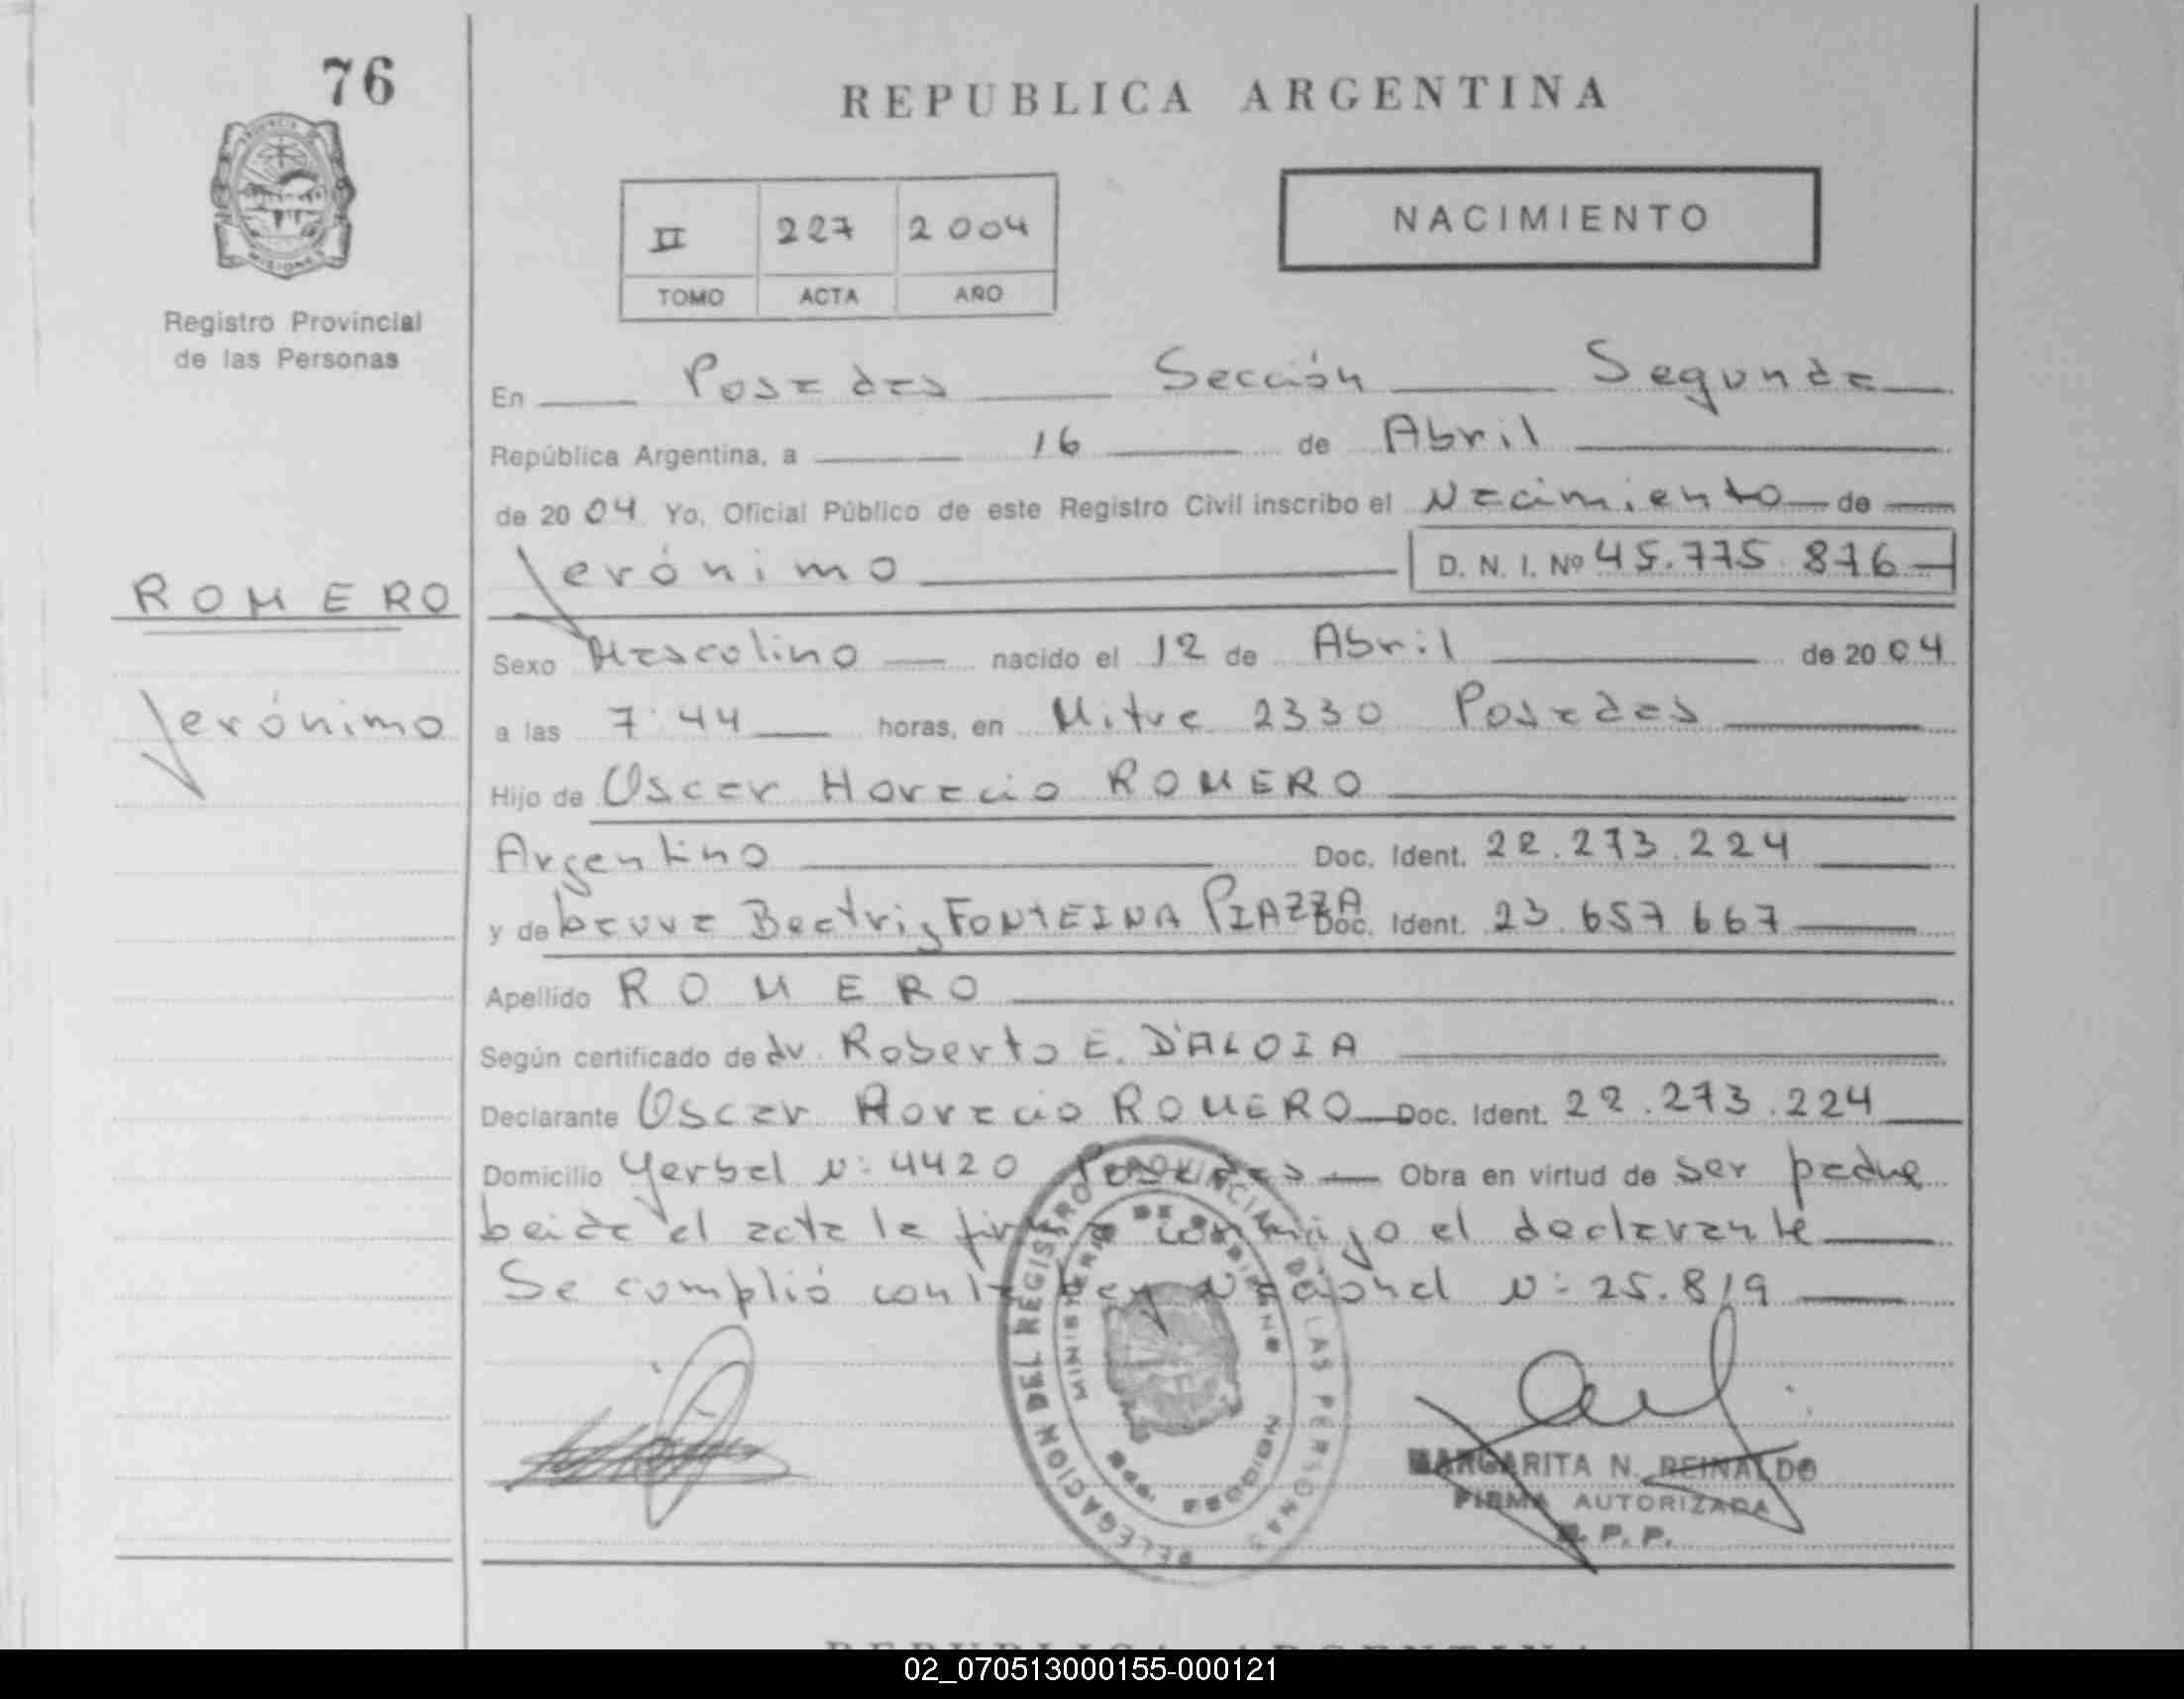 76
REPUBLICA ARGENTINA
MISIONES
Registro Provincial
de las Personas
II 227 2004
TOMO ACTA AÑO
NACIMIENTO
En Posadas Sección Segunda
República Argentina, a 16 de Abril
de 2004 Yo, Oficial Público de este Registro Civil inscribo el Nacimiento de
Jerónimo D. N. I. Nº 45.775.876
ROMERO
Sexo Masculino nacido el 12 de Abril de 2004
Jerónimo
a las 7:44 horas, en Mitre 2330 Posadas
Hijo de Oscar Horacio ROMERO
Argentino Doc. Ident. 22.273.224
y de Laura Beatriz FONTEINA PIAZZA Doc. Ident. 23.657.667
Apellido ROMERO
Según certificado de dr. Roberto E. D'ALOIA
Declarante Oscar Horacio ROMERO Doc. Ident. 22.273.224
Domicilio Yerbal N: 4420 Posadas Obra en virtud de ser padre
Leida el acta la firma conmigo el declarante
Se cumplió con la Ley Nacional N: 25.819
DELEGACION DEL REGISTRO PROVINCIAL DE LAS PERSONAS
MINISTERIO DE GOBIERNO
MARGARITA N. REINALDO
FIRMA AUTORIZADA
R. P. P.
REPUBLICA ARGENTINA
02_070513000155-000121